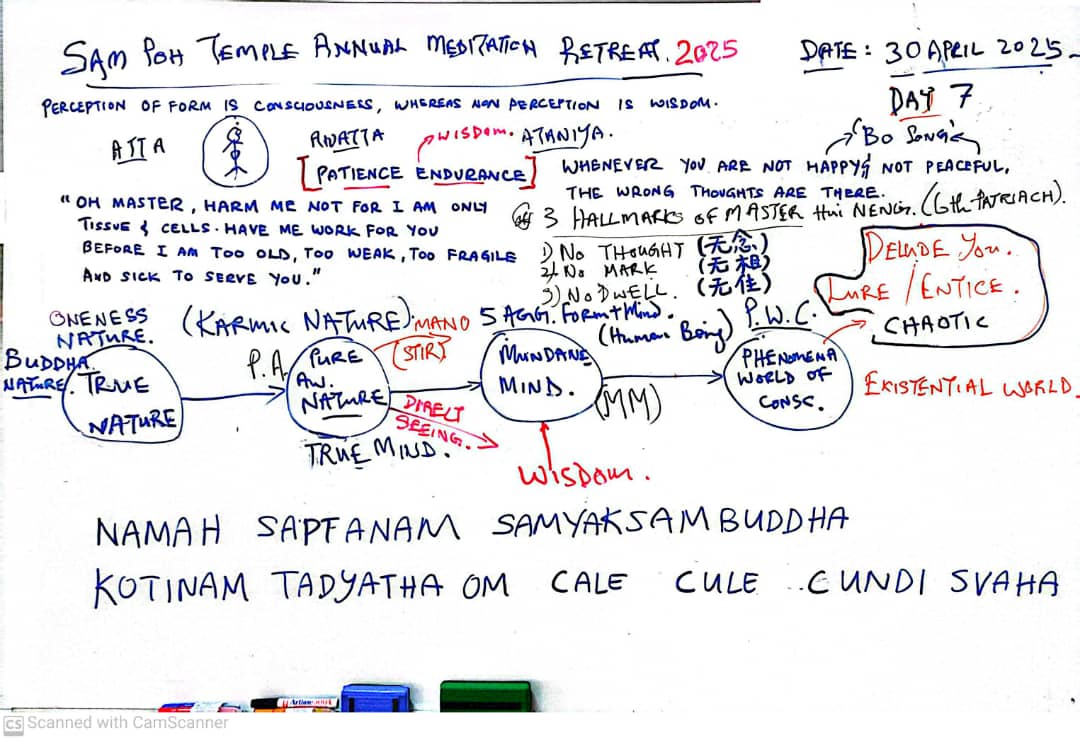 SAM POH TEMPLE ANNUAL MEDITATION RETREAT. 2025
DATE: 30 APRIL 2025
DAY 7
PERCEPTION OF FORM IS CONSCIOUSNESS, WHEREAS NON PERCEPTION IS WISDOM.
ATTA
ANATTA
WISDOM. ATANIYA.
"Bo Song"
[PATIENCE ENDURANCE]
WHENEVER YOU ARE NOT HAPPY & NOT PEACEFUL,
THE WRONG THOUGHTS ARE THERE.
"OH MASTER, HARM ME NOT FOR I AM ONLY
TISSUE & CELLS. HAVE ME WORK FOR YOU
BEFORE I AM TOO OLD, TOO WEAK, TOO FRAGILE
AND SICK TO SERVE YOU."
3 HALLMARKS OF MASTER Hui NENG. (6th PATRIACH).
1) NO THOUGHT (无念)
2) No MARK (无相)
3) No DWELL. (无住)
DELUDE You.
LURE / ENTICE.
CHAOTIC
ONENESS
NATURE.
BUDDHA
NATURE.
TRUE
NATURE
(KARMIC NATURE).
P.A.
PURE
AW.
NATURE
TRUE MIND.
MANO
(STIR)
DIRECT
SEEING.
5 AGG. FORM + Mind.
(Human Being)
MUNDANE
MIND.
(MM)
WISDOM.
P.W.C.
PHENOMENA
WORLD OF
CONSC.
EXISTENTIAL WORLD.
NAMAH SAPTANAM SAMYAKSAMBUDDHA
KOTINAM TADYATHA OM CALE CULE CUNDI SVAHA
CS Scanned with CamScanner